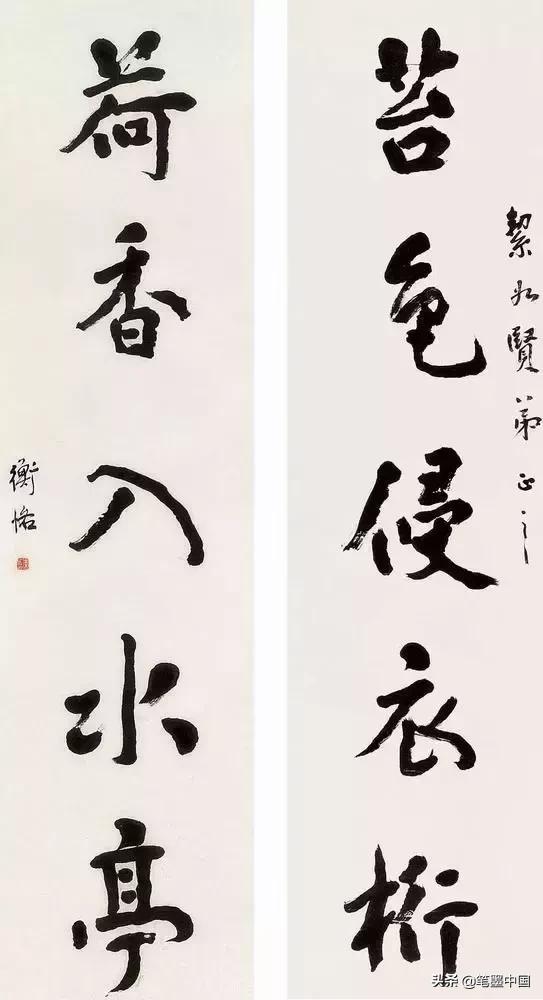 絜如賢弟正之
苔色侵衣桁
荷香入水亭
衡恪
头条 @笔墨中国